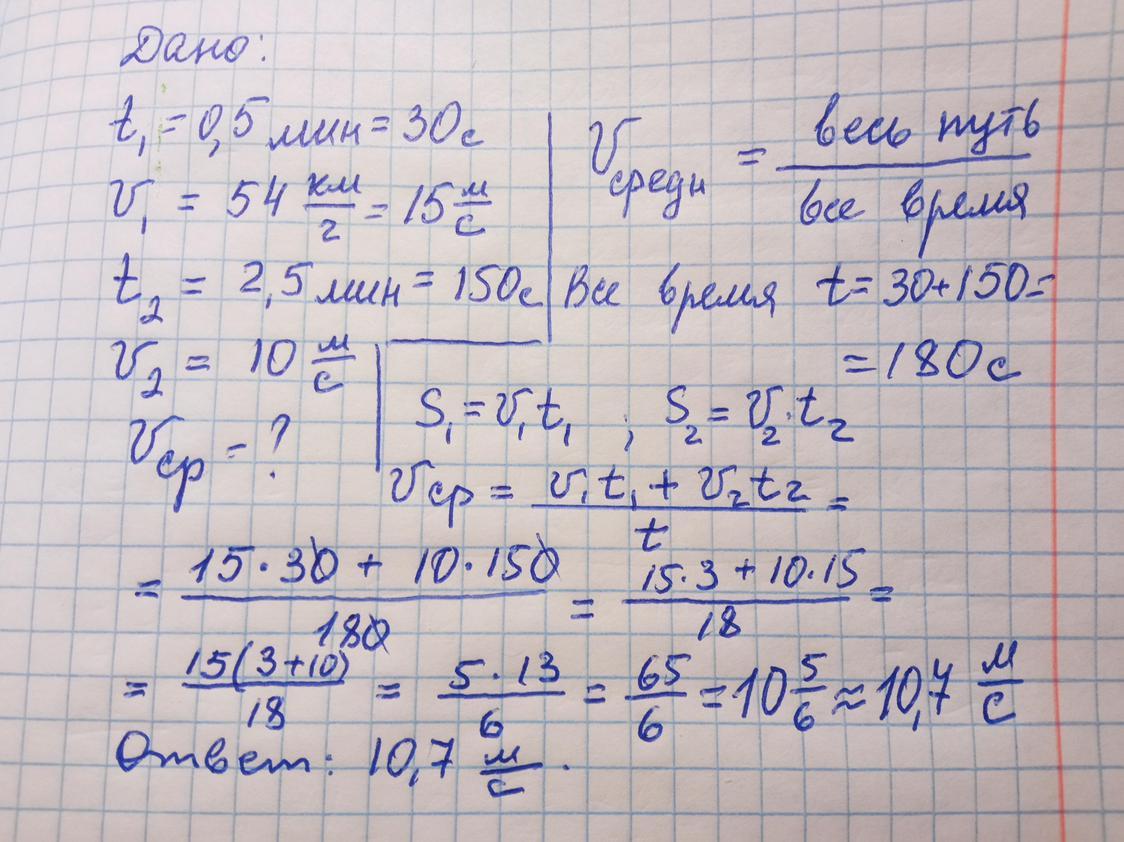 Дано:
t₁ = 0,5 мин = 30с
v₁ = 54 км/г = 15 м/с
t₂ = 2,5 мин = 150с
v₂ = 10 м/с
vср = ?
Vсредн = весь путь / все время
Все время t = 30+150=
= 180с
S₁ = v₁t₁ ; S₂ = v₂·t₂
vср = v₁t₁ + v₂t₂ / t =
= 15·30 + 10·150 / 180 = 15·3 + 10·15 / 18 =
= 15(3+10) / 18 = 5·13 / 6 = 65/6 = 10 5/6 ≈ 10,7 м/с
Ответ: 10,7 м/с.